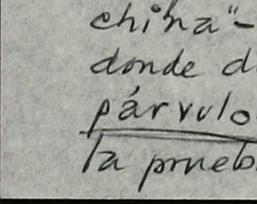 china"-
donde d
párvulo
la prueb